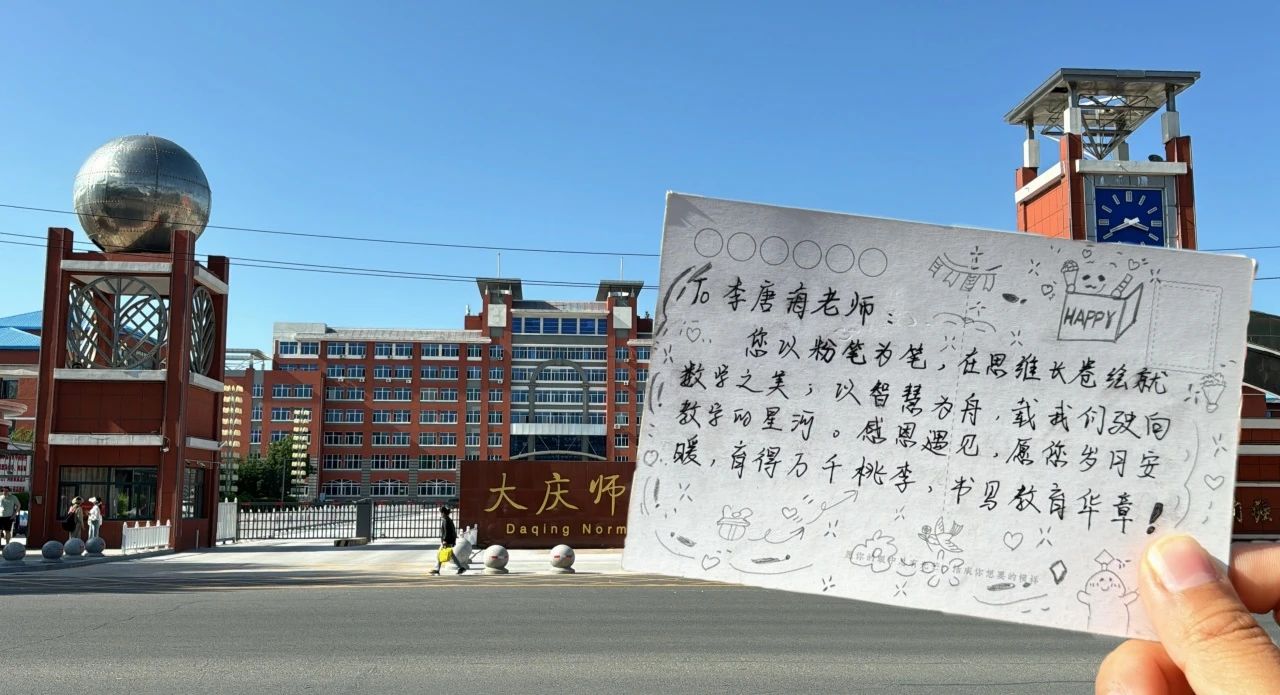 To 李唐海老师：
您以粉笔为笔，在思维长卷绘就
数学之美；以智慧为舟，载我们驶向
数字的星河。感恩遇见，愿您岁月安
暖，育得万千桃李，书写教育华章！
HAPPY
大庆师
Daqing Norm